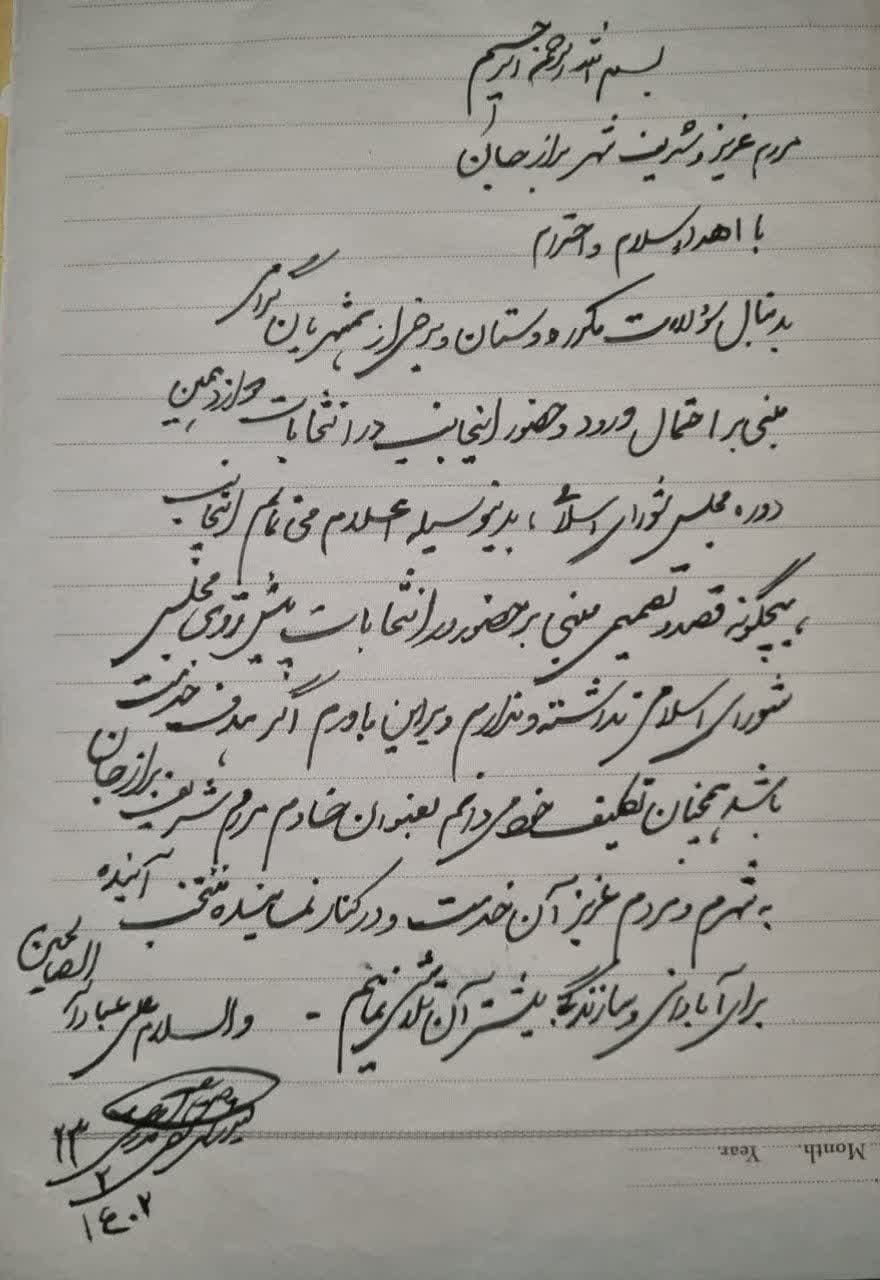 بسم الله الرحمن الرحیم
مردم عزیز و شریف شهر برازجان
با اهداء سلام و احترام
بدنبال سؤالات مکرر دوستان و برخی از همشهریان گرامی
مبنی بر احتمال ورود و حضور اینجانب در انتخابات دوازدهمین
دوره مجلس شورای اسلامی، بدینوسیله اعلام می نمایم اینجانب
هیچگونه قصد و تصمیمی مبنی بر حضور در انتخابات پیش روی مجلس
شورای اسلامی نداشته و ندارم و براین باورم اگر هدف خدمت
باشد همچنان تکلیف خود می دانم بعنوان خادم مردم شریف برازجان
به شهرم و مردم عزیز آن خدمت و در کنار نماینده منتخب آینده
برای آبادانی و سازندگی بیشتر آن تلاش نمایم - والسلام علی عبادالله الصالحین
۲۳
۲
۱۴۰۲
Month. Year.